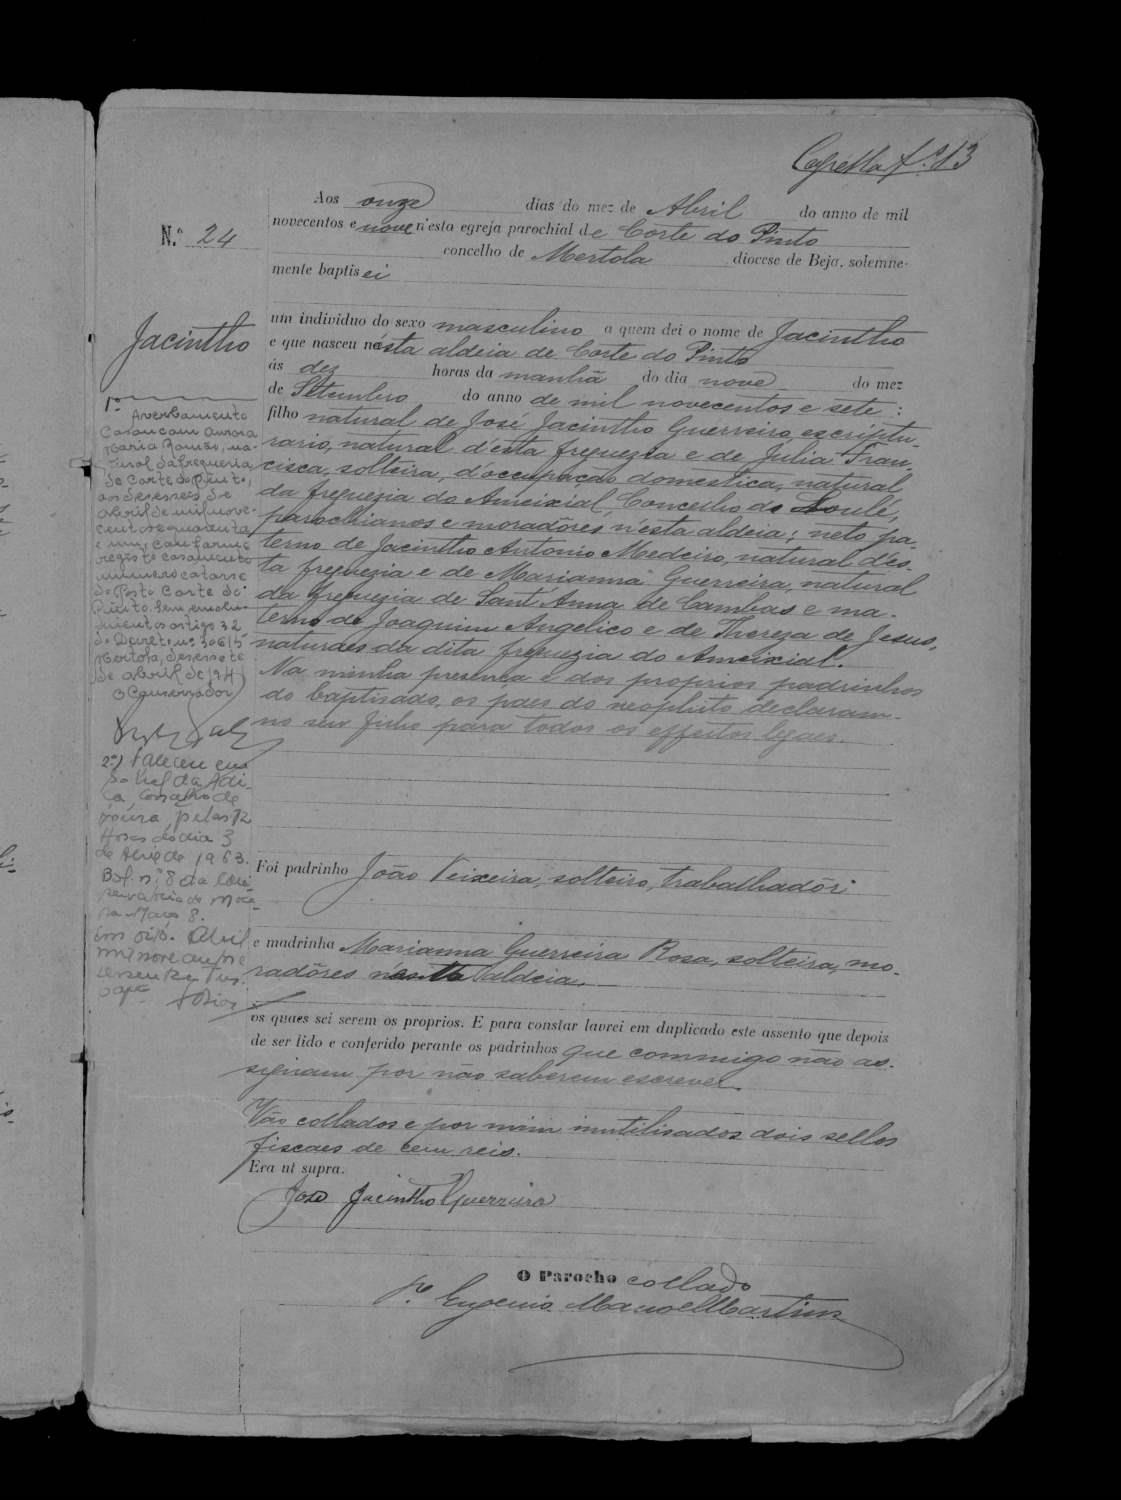 Capella f.º 13
N.º 24
Jacintho
Aos onze dias do mez de Abril do anno de mil
novecentos e nove n'esta egreja parochial de Corte do Pinto
concelho de Mertola diocese de Beja, solemne-
mente baptisei
um individuo do sexo masculino a quem dei o nome de Jacintho
e que nasceu n'ésta aldeia de Corte do Pinto
ás dez horas da manhã do dia nove do mez
de Setembro do anno de mil novecentos e sete:
filho natural de José Jacintho Guerreiro, escriptu-
rario, natural d'esta freguezia e de Julia Fran-
cisca, solteira, d'occupação domestica, natural
da freguezia do Ameixial, Concelho de Loulé,
parochianos e moradôres n'esta aldeia; neto pa-
terno de Jacintho Antonio Medeiro, natural d'es-
ta freguezia e de Marianna Guerreira, natural
da freguezia de Sant'Anna de Cambas e ma-
terno de Joaquim Angelico e de Thereza de Jesus,
naturaes da dita freguezia do Ameixial.
Na minha presença e dos proprios padrinhos
do baptisado, os paes do neophito declaram-
no seu filho para todos os effeitos legaes.
Foi padrinho João Teixeira, solteiro, trabalhadôr;
e madrinha Marianna Guerreira Rosa, solteira, mo-
radôres n'esta aldeia,
os quaes sei serem os proprios. E para constar lavrei em duplicado este assento que depois
de ser lido e conferido perante os padrinhos que commigo não as-
signam por não saberem escrever.
Vão collados e por mim inutilisados dois sellos
fiscaes de cem reis.
Era ut supra.
José Jacintho Guerreiro
O Parocho collado
P.e Eugenio Manoel Martins
1º
Averbamento
Casou com Aurora
Maria Romão, na-
tural da freguezia
de Corte do Pinto,
aos desesseis de
abril de mil nove-
centos e quarenta
e um, conforme
registo casamento
numero catorze
do Posto Corte do
Pinto. Sem emolu-
mentos artigo 32
do Decreto nº 30615
Mertola, desessete
de abril de 1941
O Conservador,
2º) Faleceu em
Sobral da Adi-
ça, concelho de
Moura, pelas 12
Horas do dia 3
de Abril de 1963.
Bol. nº 8 da Con-
servatoria de Mou-
ra Maço 8.
Em oito Abril
mil novecentos
sessenta e tres.